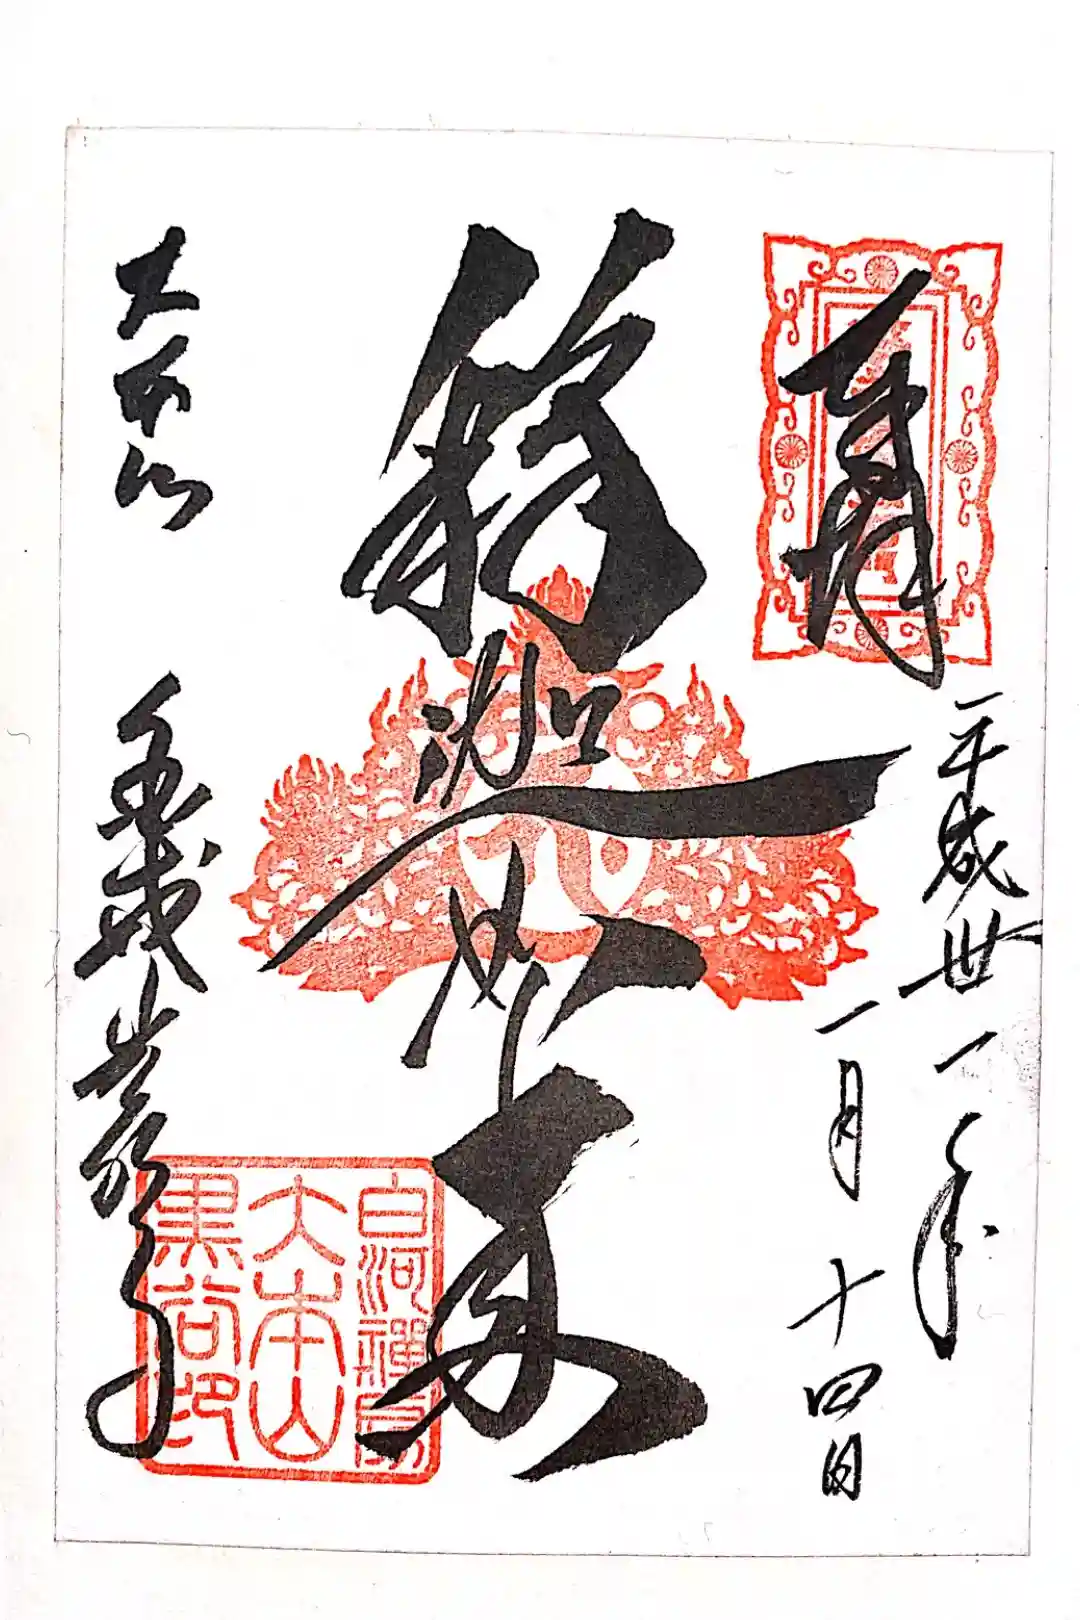 奉拝
平成丗一年
一月十四日
釋迦如来
大本山
金戒光明寺
白河禪房
大本山
黒谷印